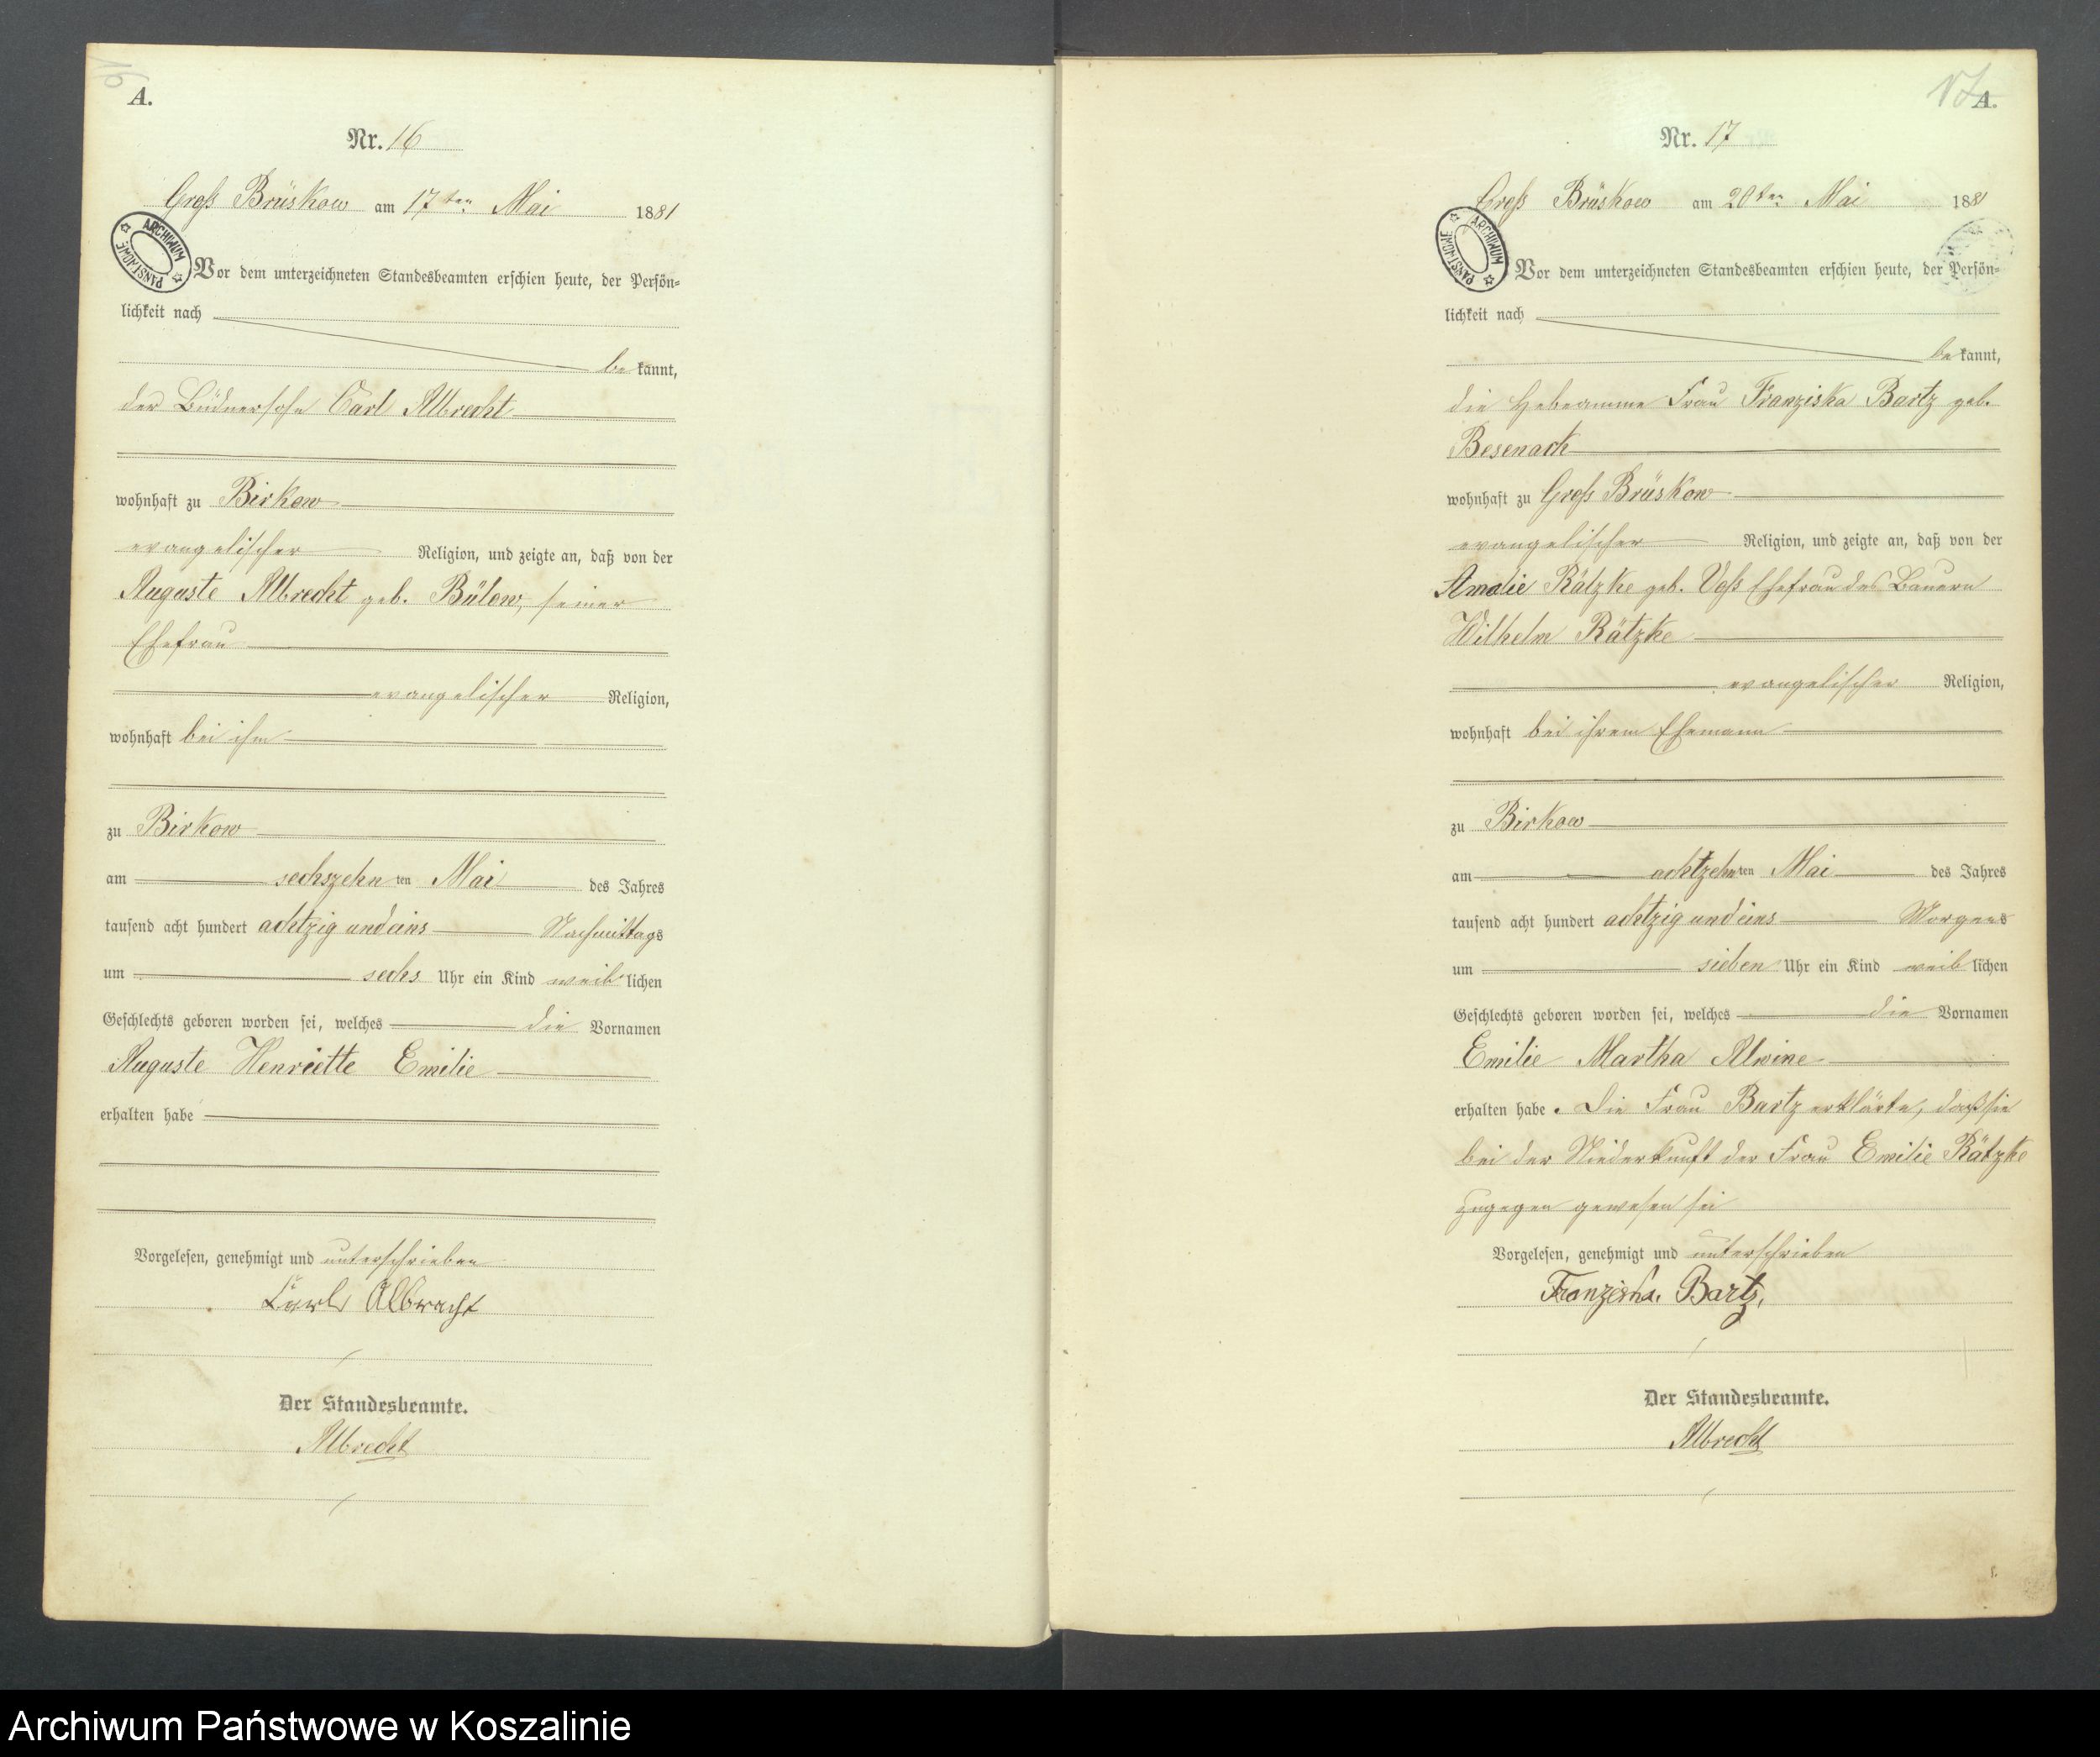 16
A.
Nr. 16
Groß Brüskow am 17ten Mai 1881
ARCHIWUM PAŃSTWOWE
Vor dem unterzeichneten Standesbeamten erschien heute, der Persön=
lichkeit nach
be kannt,
der Büdnersohn Carl Albrecht
wohnhaft zu Birkow
evangelischer Religion, und zeigte an, daß von der
Auguste Albrecht geb. Bülow, seiner
Ehefrau
evangelischer Religion,
wohnhaft bei ihm
zu Birkow
am sechszehn ten Mai des Jahres
tausend acht hundert achtzig und eins Nachmittags
um sechs Uhr ein Kind weib lichen
Geschlechts geboren worden sei, welches die Vornamen
Auguste Henriette Emilie
erhalten habe
Vorgelesen, genehmigt und unterschrieben
Carl Albrecht
Der Standesbeamte.
Albrecht
17
A.
Nr. 17
Groß Brüskow am 20ten Mai 1881
ARCHIWUM PAŃSTWOWE
Vor dem unterzeichneten Standesbeamten erschien heute, der Persön=
lichkeit nach
be kannt,
die Hebeamme Frau Franziska Bartz geb.
Besenack
wohnhaft zu Groß Brüskow
evangelischer Religion, und zeigte an, daß von der
Amalie Rätzke geb. Voß Ehefrau des Bauern
Wilhelm Rätzke
evangelischer Religion,
wohnhaft bei ihrem Ehemann
zu Birkow
am achtzehn ten Mai des Jahres
tausend acht hundert achtzig und eins Morgens
um sieben Uhr ein Kind weib lichen
Geschlechts geboren worden sei, welches die Vornamen
Emilie Martha Alwine
erhalten habe. Die Frau Bartz erklärte, daß sie
bei der Niederkunft der Frau Emilie Rätzke
zugegen gewesen sei
Vorgelesen, genehmigt und unterschrieben
Franziska Bartz,
Der Standesbeamte.
Albrecht
Archiwum Państwowe w Koszalinie